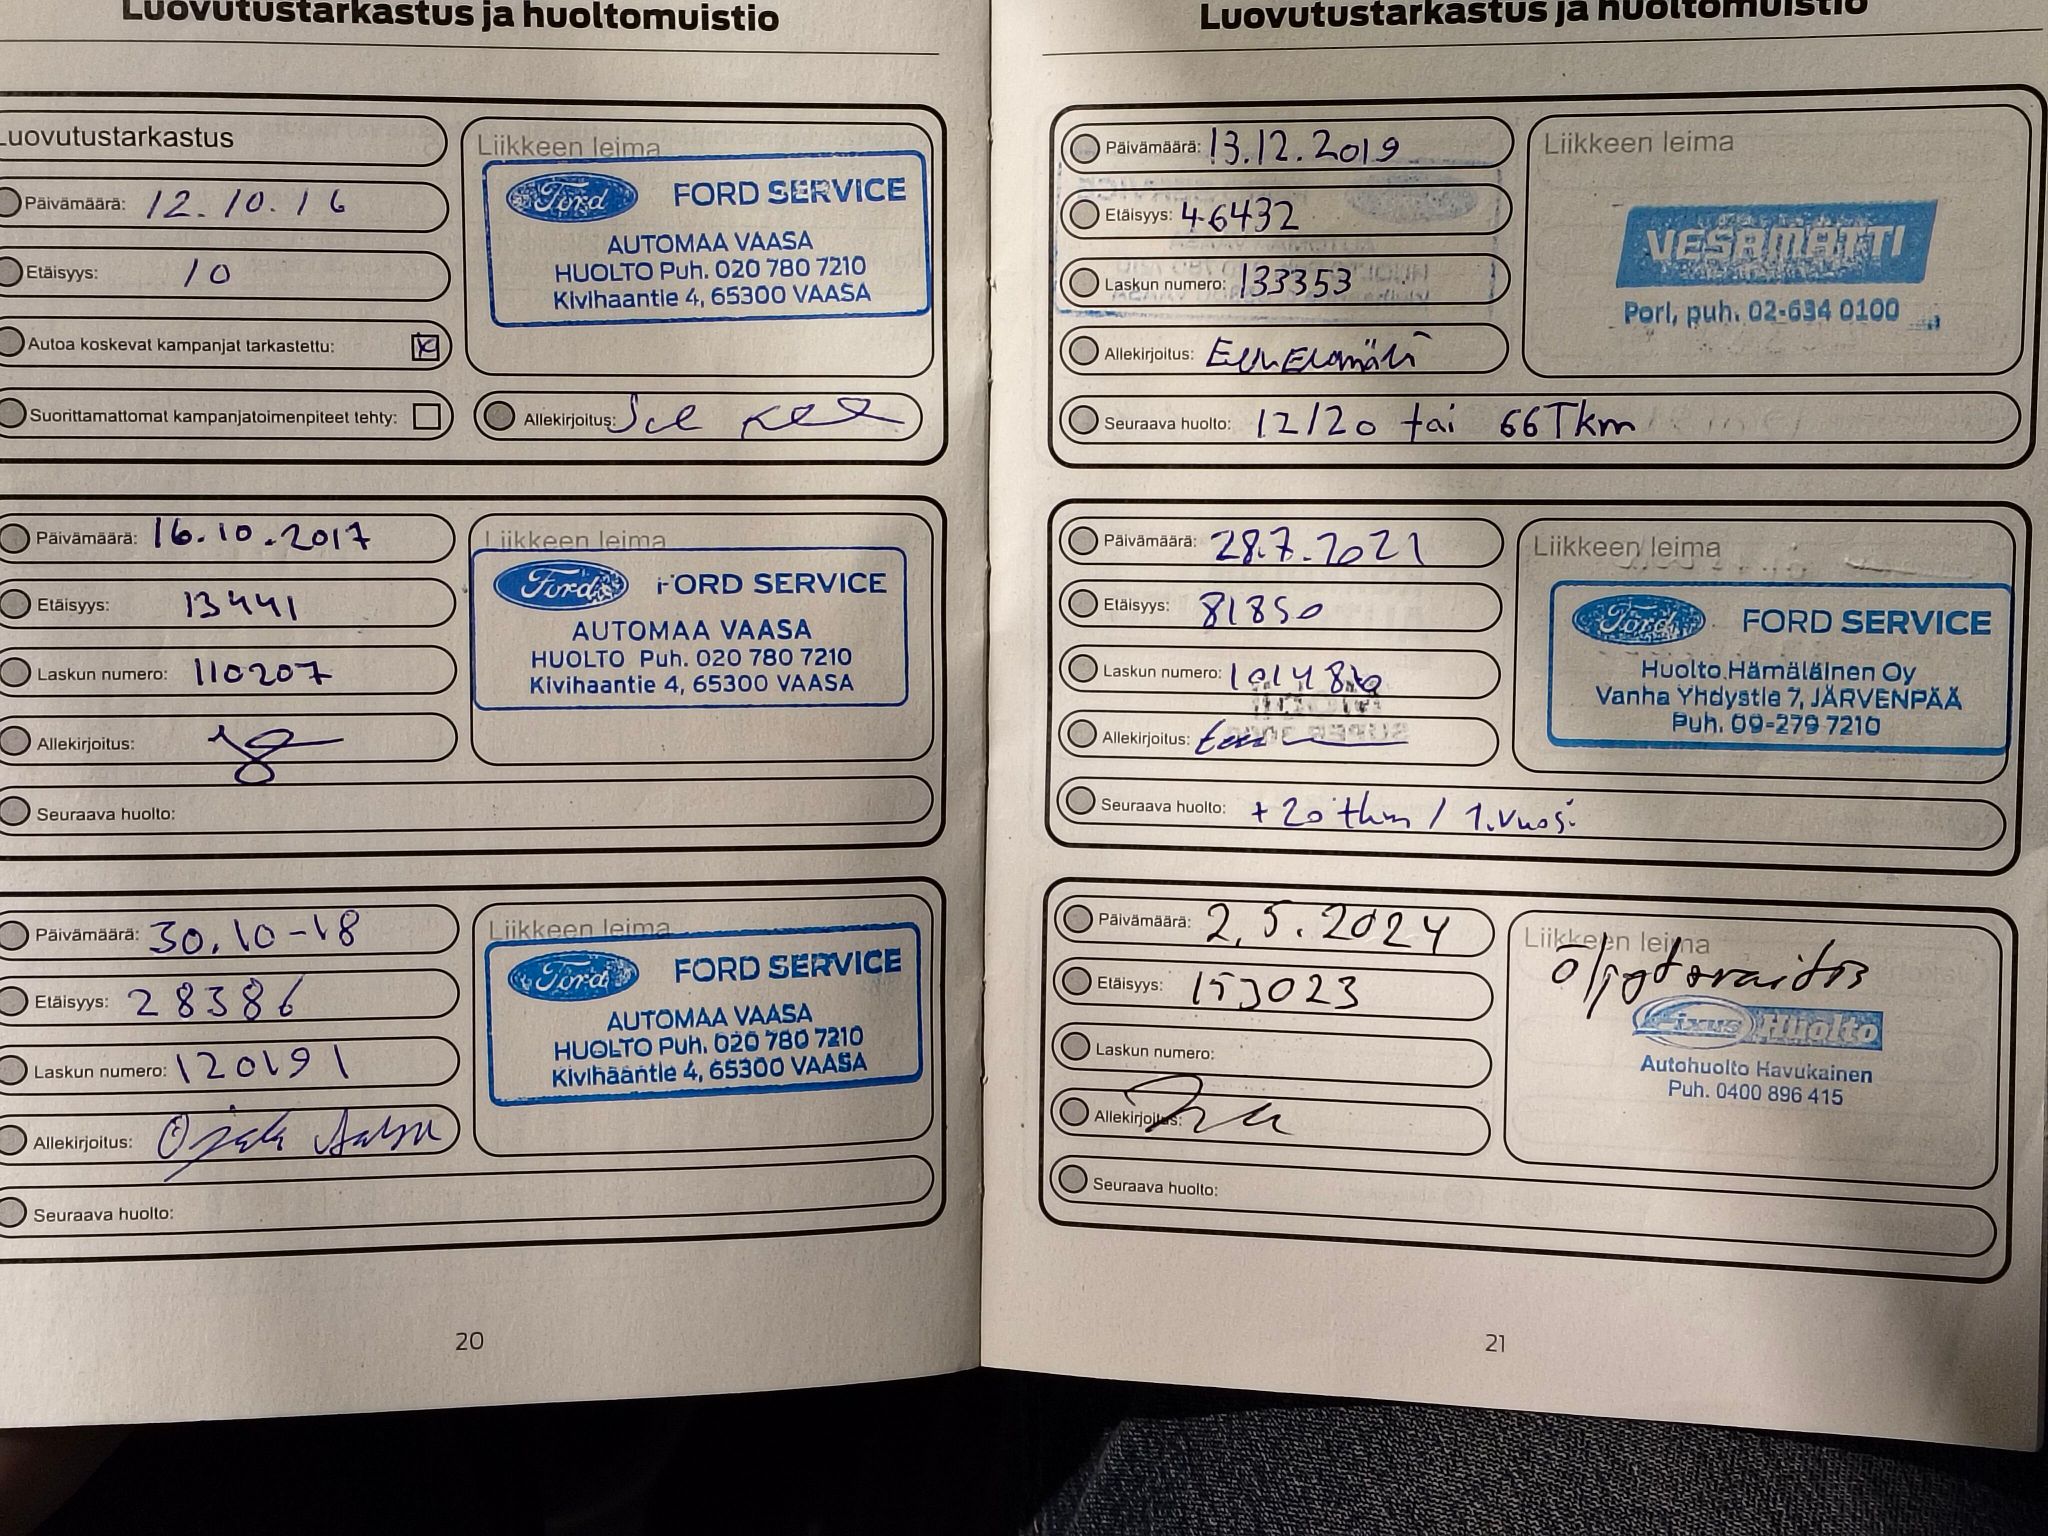 Luovutustarkastus ja huoltomuistio
Luovutustarkastus
Päivämäärä: 12.10.16
Etäisyys: 10
Autoa koskevat kampanjat tarkastettu: x
Suorittamattomat kampanjatoimenpiteet tehty:
Liikkeen leima
Ford FORD SERVICE
AUTOMAA VAASA
HUOLTO Puh. 020 780 7210
Kivihaantie 4, 65300 VAASA
Allekirjoitus:
Päivämäärä: 16.10.2017
Etäisyys: 13441
Laskun numero: 110207
Allekirjoitus:
Seuraava huolto:
Liikkeen leima
Ford FORD SERVICE
AUTOMAA VAASA
HUOLTO Puh. 020 780 7210
Kivihaantie 4, 65300 VAASA
Päivämäärä: 30.10-18
Etäisyys: 28386
Laskun numero: 120191
Allekirjoitus:
Seuraava huolto:
Liikkeen leima
Ford FORD SERVICE
AUTOMAA VAASA
HUOLTO Puh. 020 780 7210
Kivihaantie 4, 65300 VAASA
20
Luovutustarkastus ja huoltomuistio
Päivämäärä: 13.12.2019
Etäisyys: 46432
Laskun numero: 133353
Allekirjoitus:
Seuraava huolto: 12/20 tai 66Tkm
Liikkeen leima
VESAMATTI
Pori, puh. 02-634 0100
Päivämäärä: 28.7.2021
Etäisyys: 81850
Laskun numero:
Allekirjoitus:
Seuraava huolto: +20 tkm / 1.vuosi
Liikkeen leima
Ford FORD SERVICE
Huolto Hämäläinen Oy
Vanha Yhdystie 7, JÄRVENPÄÄ
Puh. 09-279 7210
Päivämäärä: 2.5.2024
Etäisyys: 153023
Laskun numero:
Allekirjoitus:
Seuraava huolto:
Liikkeen leima
Fixus Huolto
Autohuolto Havukainen
Puh. 0400 896 415
21